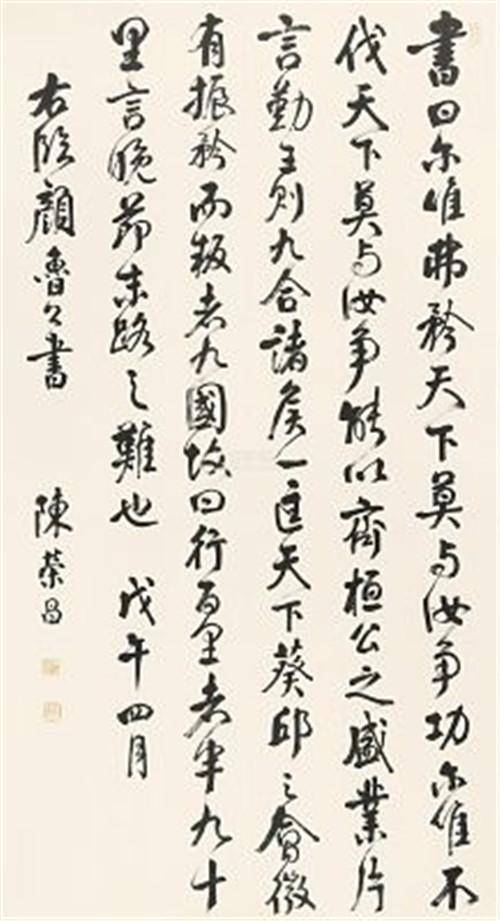 書曰尔惟弗矜天下莫与汝争功尔惟不
伐天下莫与汝争能以齊桓公之盛業片
言勤王则九合諸矦一匡天下葵邱之會微
有振矜而叛者九國故曰行百里者半九十
里言晚节末路之難也 戊午四月
右临顔魯公書 陳榮昌